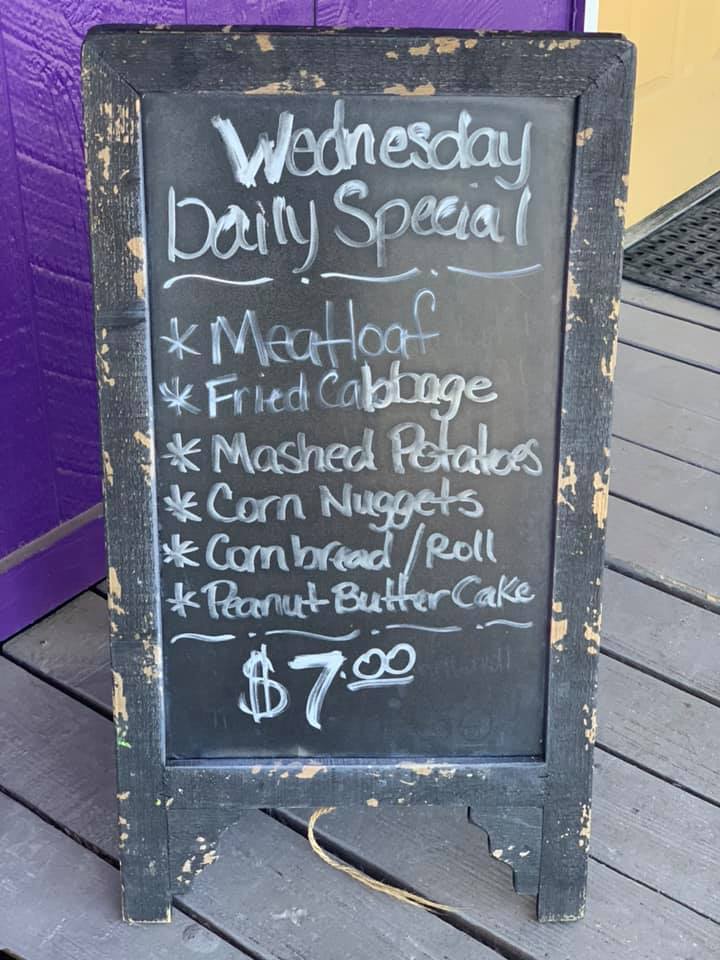 Wednesday
Daily Special
* Meatloaf
* Fried Cabbage
* Mashed Potatoes
* Corn Nuggets
* Cornbread / Roll
* Peanut Butter Cake
$7.00